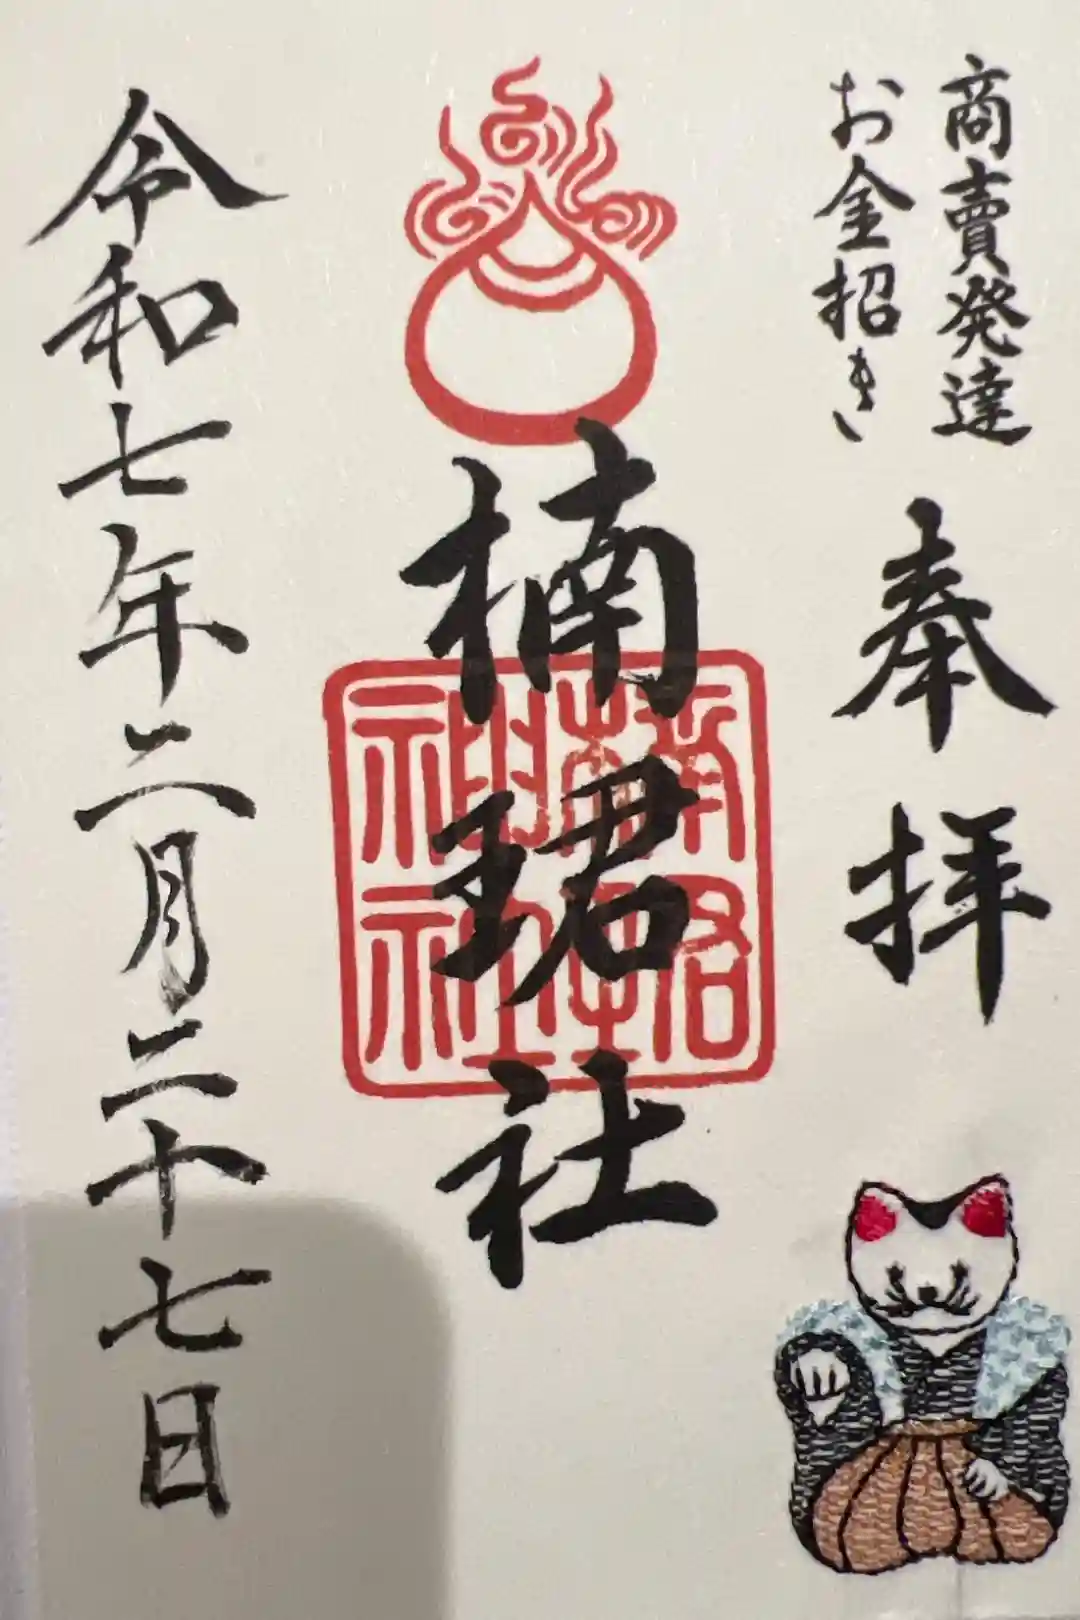 商賣発達
お金招き
奉拝
楠珺社
楠珺
神社
令和七年二月二十七日